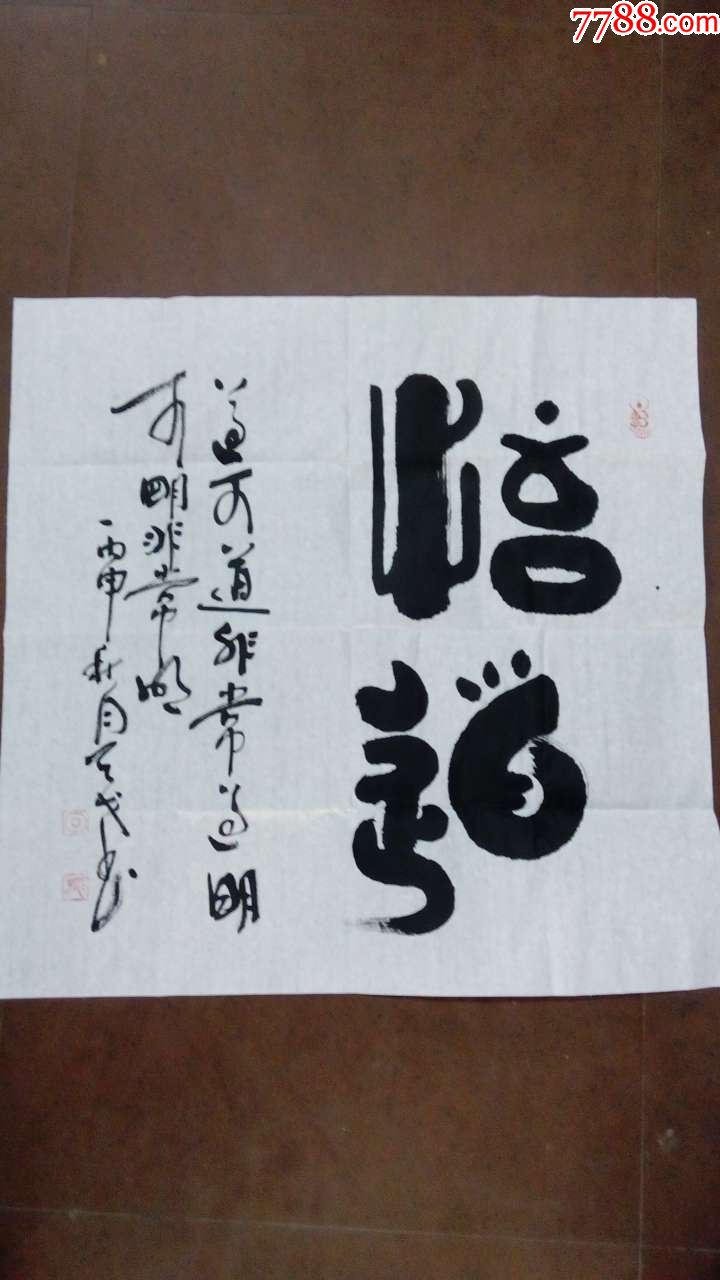 7788.com
悟道
道可道非常道明
可明非常明
丙申秋月